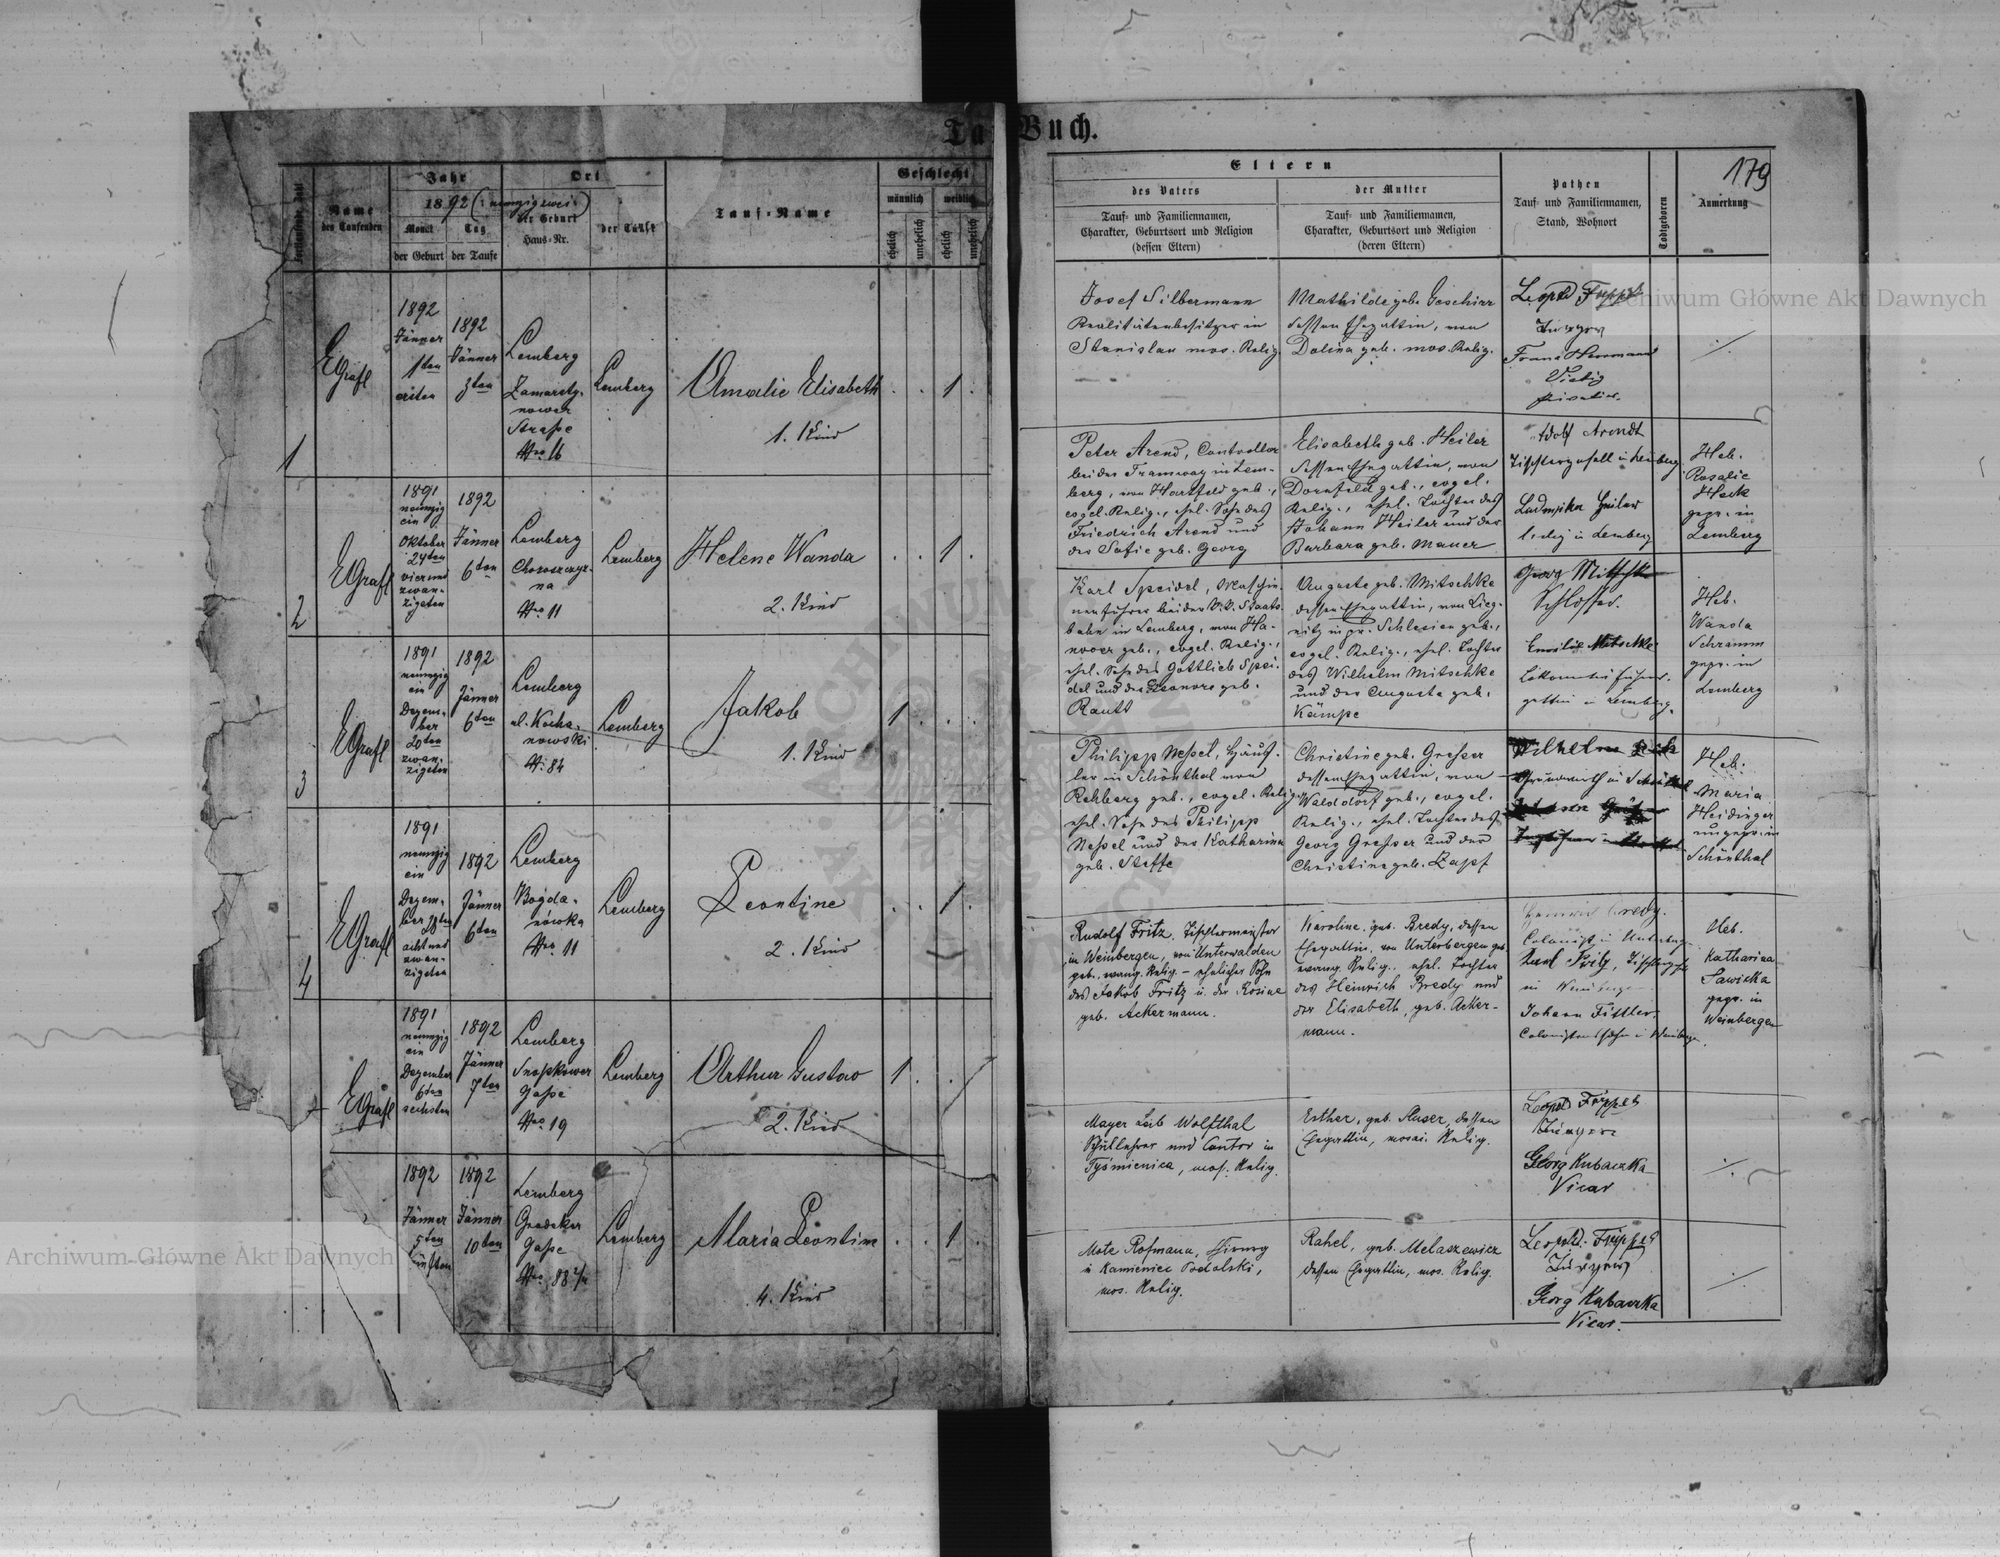 Tauf Buch.
179
Fortlaufende Zahl
Name
des Taufenden
Jahr
1892 (: neunzigzwei :)
Monat
Tag
der Geburt
der Taufe
Ort
der Geburt
Haus-Nr.
der Taufe
Tauf-Name
Geschlecht
männlich
weiblich
ehelich
unehelich
ehelich
unehelich
1
EGrafl
1892
Jänner
1ten
ersten
1892
Jänner
3ten
Lemberg
Zamarsty-
nower
Straße
Nro 16
Lemberg
Amalie Elisabeth
1. Kind
1
2
EGrafl
1891
neunzig
ein
Oktober
24ten
vierund
zwan-
zigsten
1892
Jänner
6ten
Lemberg
Chorszczyz-
na
Nro 11
Lemberg
Helene Wanda
2. Kind
1
3
EGrafl
1891
neunzig
ein
Dezem-
ber
20ten
zwan-
zigsten
1892
Jänner
6ten
Lemberg
ul. Kocha-
nowski
N: 84
Lemberg
Jakob
1. Kind
1
4
EGrafl
1891
neunzig
ein
Dezem-
ber 28ten
achtund
zwan-
zigsten
1892
Jänner
6ten
Lemberg
Bogda-
nówka
Nro 11
Lemberg
Leontine
2. Kind
1
EGrafl
1891
neunzig
ein
Dezember
6ten
sechsten
1892
Jänner
7ten
Lemberg
Snopkower
Gaße
Nro 19
Lemberg
Arthur Gustav
2. Kind
1
1892
Jänner
5ten
fünften
1892
Jänner
10ten
Lemberg
Grodeker
Gaße
Nro 88
Lemberg
Maria Leontine
4. Kind
1
Eltern
des Vaters
Tauf- und Familiennamen,
Charakter, Geburtsort und Religion
(dessen Eltern)
der Mutter
Tauf- und Familiennamen,
Charakter, Geburtsort und Religion
(deren Eltern)
Pathen
Tauf- und Familiennamen,
Stand, Wohnort
Todtgeboren
Anmerkung
Josef Silbermann
Realitätenbesitzer in
Stanislau mos. Relig.
Mathilde geb. Geschirr
dessen Ehegattin, von
Dolina geb. mos. Relig.
Leopold
Franz Herrmann
Peter Arend, Controllor
bei der Tramway in Lem-
berg, von Hartfeld geb.,
evgel. Relig., ehel. Sohn des
Friedrich Arend und
der Sofie geb. Georg
Elisabeth geb. Heiler
dessen Ehegattin, von
Dornfeld geb., evgel.
Relig., ehel. Tochter des
Johann Heiler und der
Barbara geb. Mauer
Adolf Arendt
Tischlergesell in Lemberg
Ludwika Heiler
ledig in Lemberg
Heb.
Rosalie
Heck
gepr. in
Lemberg
Karl Speidel, Maschin-
nenführer bei der k.k. Staats-
bahn in Lemberg, von Ha-
nover geb., evgel. Relig.,
ehel. Sohn des Gottlieb Spei-
del und der Eleanore geb.
Rautt
Auguste geb. Mitschke
dessen Ehegattin, von Lieg-
nitz in pr. Schlesien geb.,
evgel. Relig., ehel. Tochter
des Wilhelm Mitschke
und der Auguste geb.
Kämpe
Georg Mitschke
Schlosser.
Emilie Mitschke
Lokomotivführers-
gattin in Lemberg.
Heb.
Wanda
Schramm
gepr. in
Lemberg
Philipp Neßel, Häus-
ler in Schönthal von
Rehberg geb., evgel. Relig.
ehel. Sohn des Philipp
Neßel und der Katharina
geb. Steffe
Christine geb. Greßer
dessen Ehegattin, von
Walddorf geb., evgel.
Relig., ehel. Tochter des
Georg Greßer und der
Christine geb. Zapf
Wilhelm
Grundwirth in Schönthal
Heb.
Maria
Heidinger
ungepr. in
Schönthal
Rudolf Fritz, Tischlermeister
in Weinbergen, von Unterwalden
geb. evang. Relig. – ehelicher Sohn
des Jakob Fritz u. der Rosine
geb. Ackermann.
Karoline, geb. Bredy, dessen
Ehegattin, von Unterbergen geb.
evang. Relig., ehel. Tochter
des Heinrich Bredy und
der Elisabeth, geb. Acker-
mann.
Heinrich Bredy.
Colonist in Unterbergen
Karl Fritz,
in Weinbergen
Johann Fittler,
Colonistensohn in Weinbergen.
Heb.
Katharina
Sawicka
gepr. in
Weinbergen
Mayer Leib Wolfthal
Schullehrer und Cantor in
Tyśmienica, mos. Relig.
Esther, geb. Auser, dessen
Ehegattin, mosai. Relig.
Leopold
Georg Kubaczka
Vicar
Mote Rofmann,
in Kamieniec Podolski,
mos. Relig.
Rahel, geb. Melaszewicz
dessen Ehegattin, mos. Relig.
Leopold
Georg Kubaczka
Vicar.
Archiwum Główne Akt Dawnych
Archiwum Główne Akt Dawnych